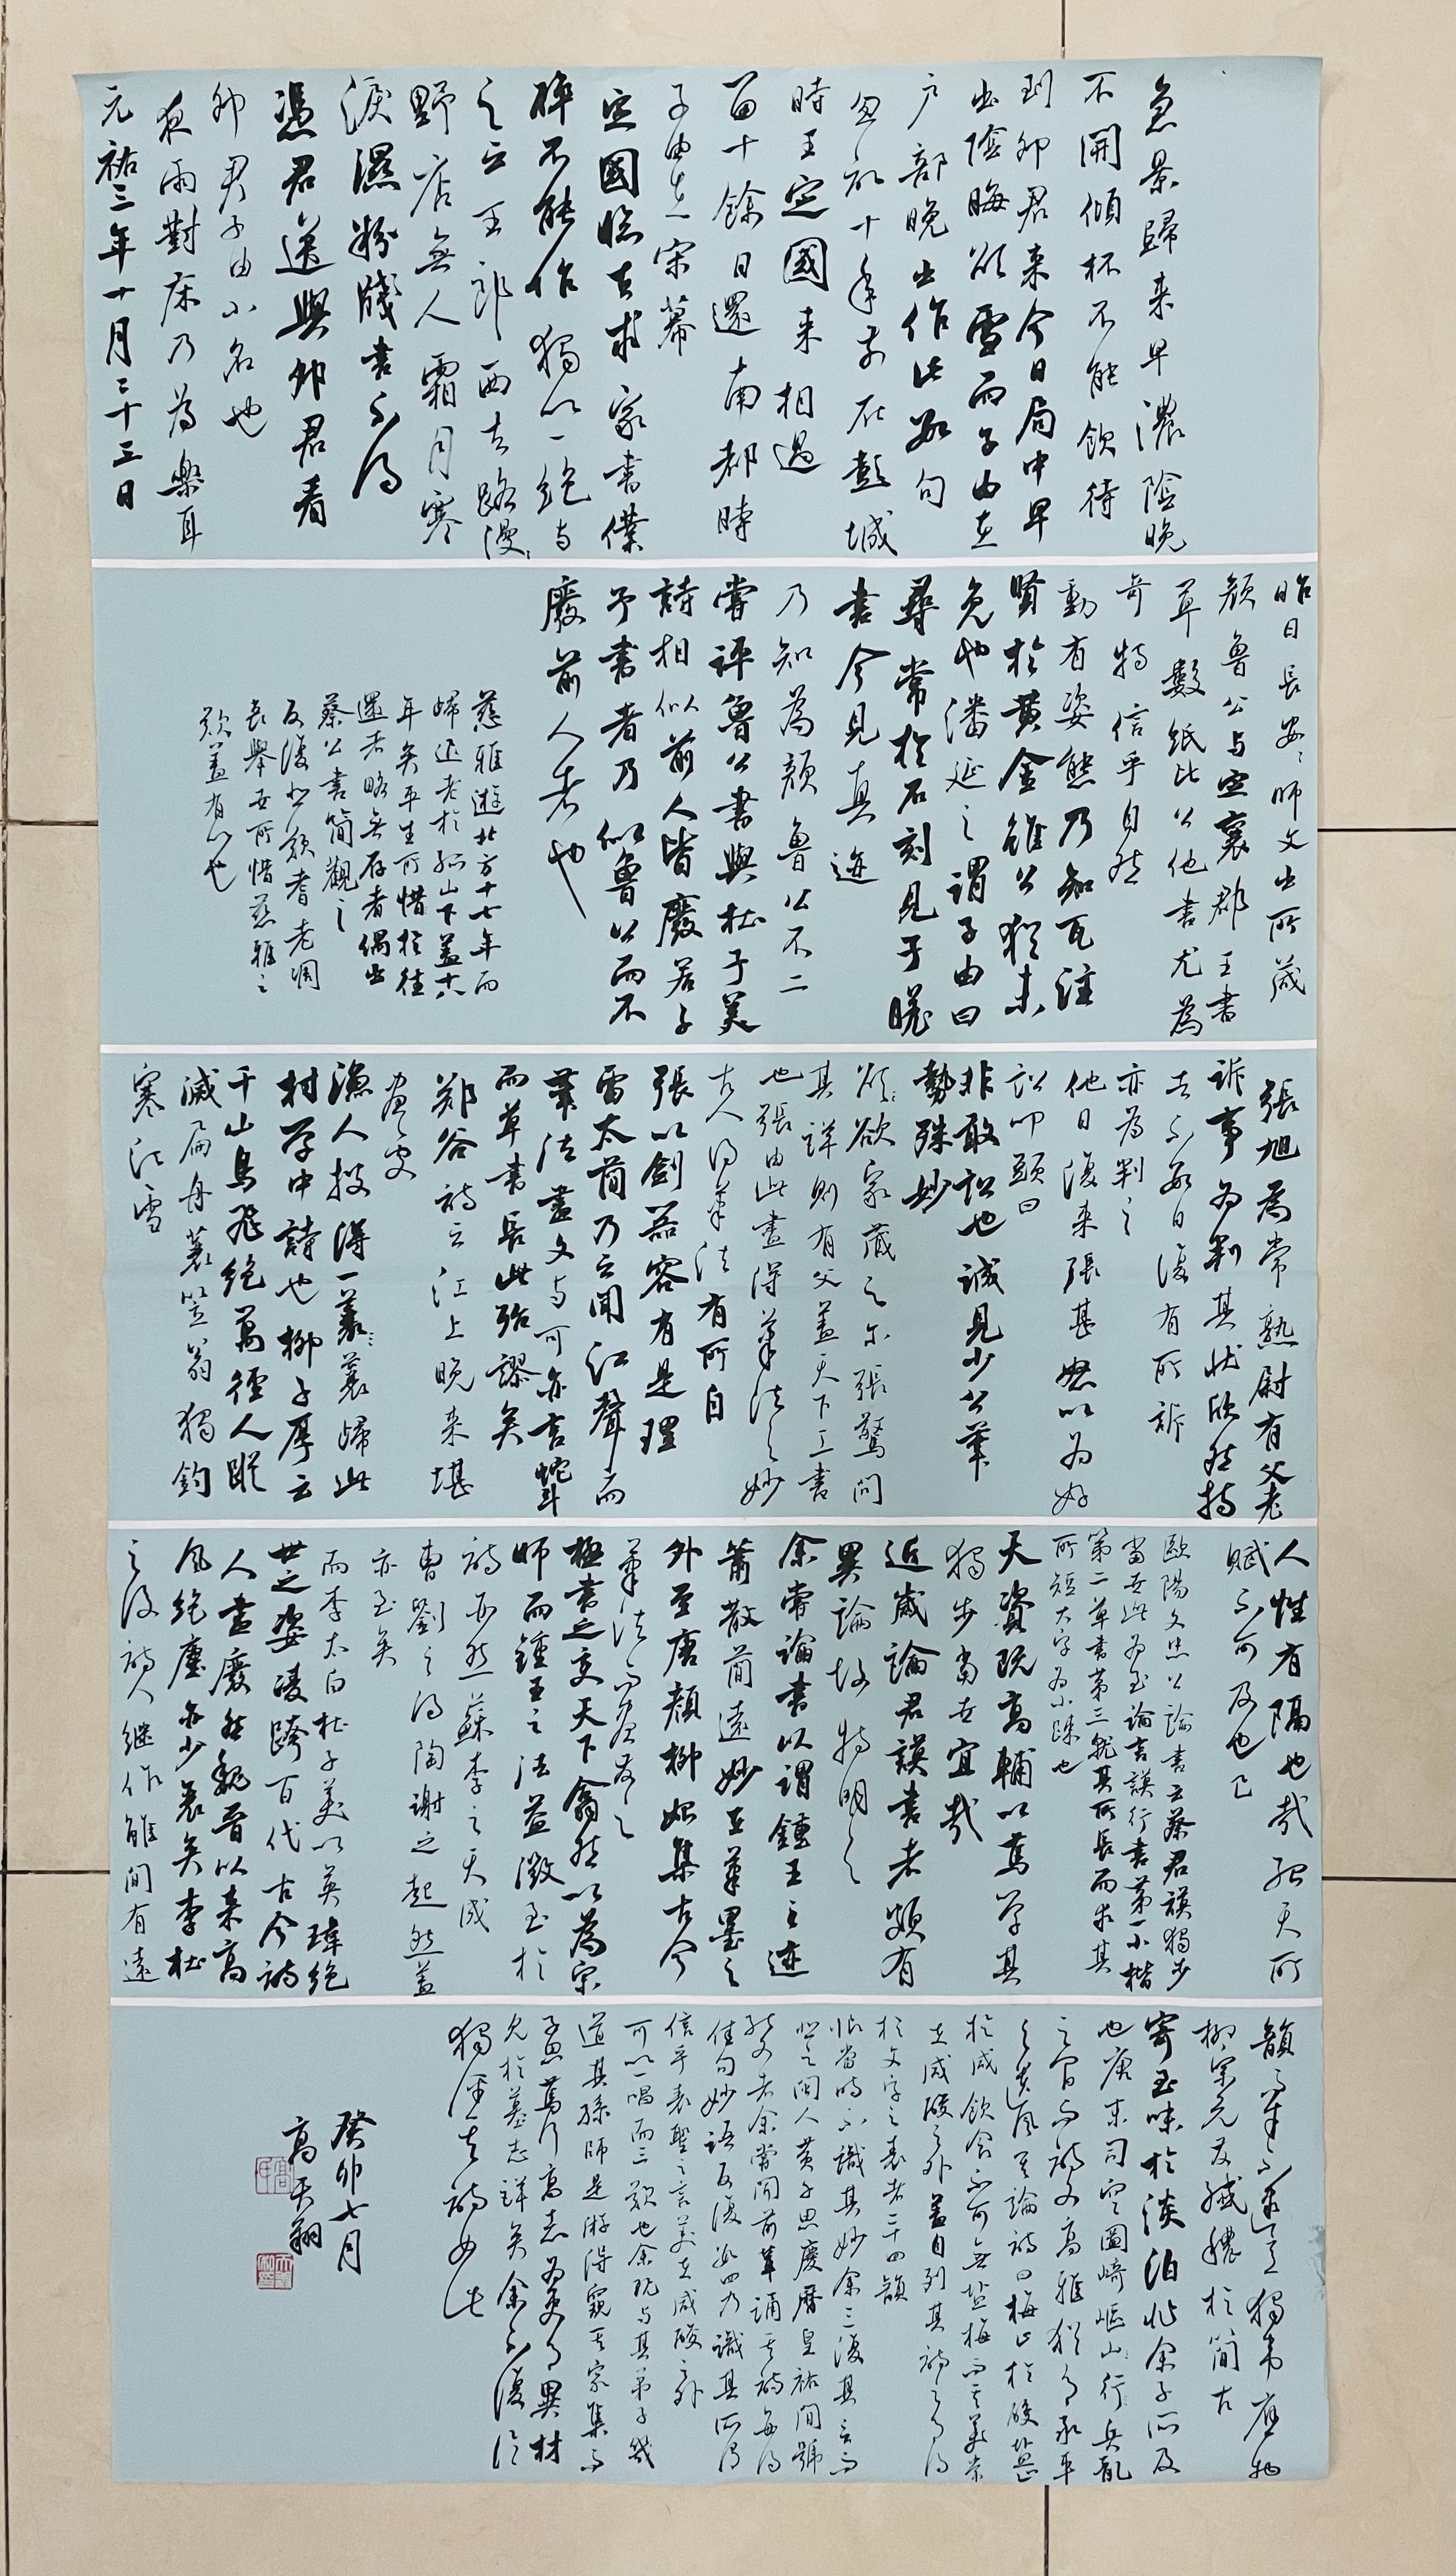 急景歸来早濃陰晚
不開傾杯不能飲待
到卯君来今日局中早
出陰晦欲雪而子由在
户部晚出作此數句
忽記十年前在彭城
時王定國来相過
留十餘日還南都時
子由在宋幕
定國臨去求家書僕
醉不能作獨以一絕与
之云王郎西去路漫漫
野店無人霜月寒
淚濕粉牋書不得
憑君送與卯君看
卯君子由小名也
夜雨對床乃為樂耳
元祐三年十月二十三日
昨日長安安師文出所藏
顏魯公与定襄郡王書
草數紙比公他書尤為
奇特信乎自然
動有姿態乃知瓦注
賢於黄金雖公猶未
免也潘延之謂子由曰
尋常於石刻見子瞻
書今見真迹
乃知為顏魯公不二
嘗評魯公書與杜子美
詩相似前人皆廢若予
予書者乃似魯公而不
廢前人者也
慈雅遊北方十七年而
歸退老於孤山下蓋十八
年矣平生所惜於往
還者略無存者偶出
蔡公書簡觀之
反復悲歎耆老凋
喪舉世所惜慈雅之
歎蓋有以也
張旭為常熟尉有父老
訴事為判其狀欣然持
去不數日復有所訴
亦為判之
他日復来張甚怒以為好
訟叩頭曰
非敢訟也誠見少公筆
勢殊妙
欲欲家藏之尔張驚問
其詳則有父蓋天下工書
也張由此盡得筆法之妙
古人得筆法有所自
張以劍器容有是理
雷太簡乃云聞江聲而
筆法盡文与可亦言蛇鬥
而草書長此殆謬矣
鄭谷詩云江上晚来堪
畫處
漁人披得一蓑蓑歸此
村学中詩也柳子厚云
千山鳥飛絕萬徑人蹤
滅扁舟蓑笠翁獨釣
寒江雪
人性有隔也哉殆天所
賦不可及也已
歐陽文忠公論書云蔡君謨獨步
當世此為至論言謨行書第一小楷
第二草書第三就其所長而求其
所短大字為小疎也
天資既高輔以篤学其
獨步當世宜哉
近歲論君謨書者頗有
異論故特明之
余嘗論書以謂鍾王之迹
蕭散簡遠妙在筆墨之
外至唐顏柳始集古今
筆法而盡發之
極書之變天下翕然以為宗
師而鍾王之法益微至於
詩亦然蘇李之天成
曹劉之得陶謝之超然蓋
亦至矣
而李太白杜子美以英瑋絕
世之姿凌跨百代古今詩
人盡廢然魏晉以来高
風絕塵亦少衰矣李杜
之後詩人继作雖間有遠
韻而才不逮意獨韦應物
柳宗元發纖穠於简古
寄至味於淡泊非余子所及
也唐末司空圖崎嶇山行兵亂
之間而詩文高雅猶有承平
之遺風其論詩曰梅止於酸鹽止
於咸飲食不可無鹽梅而其美常
在咸酸之外蓋自列其詩之有得
於文字之表者二十四韻
恨當時不識其妙余三復其言而
悲之閩人黄子思慶曆皇祐間號
能文者余嘗聞前輩誦其詩每得
佳句妙語反復數四乃識其所得
信乎表聖之言美在咸酸之外
可以一唱而三歎也余既与其弟子幾
道其孫師是游得窺其家集而
子思篤行高志為吏有異材
見於墓志詳矣余不復论
獨評其詩如此
癸卯七月
高天翔